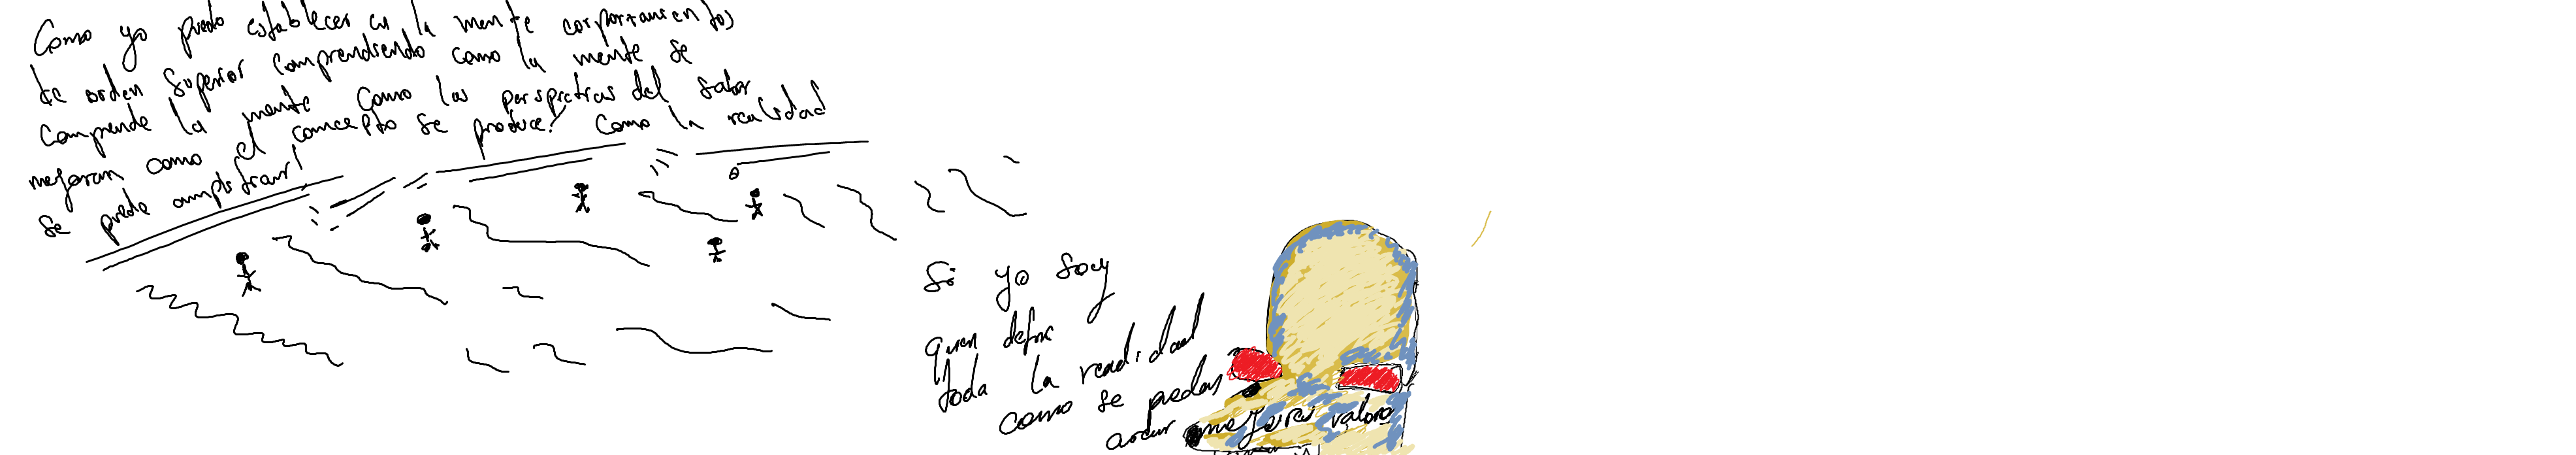 Como yo puedo establecer en la mente comportamientos
de orden superior comprendiendo como la mente se
comprende la mente como las perspectivas del saber
mejoran como el concepto se produce! Como la realidad
se puede amplificar!
Si yo soy
quien define
toda la realidad
como se puedan
mejores valores